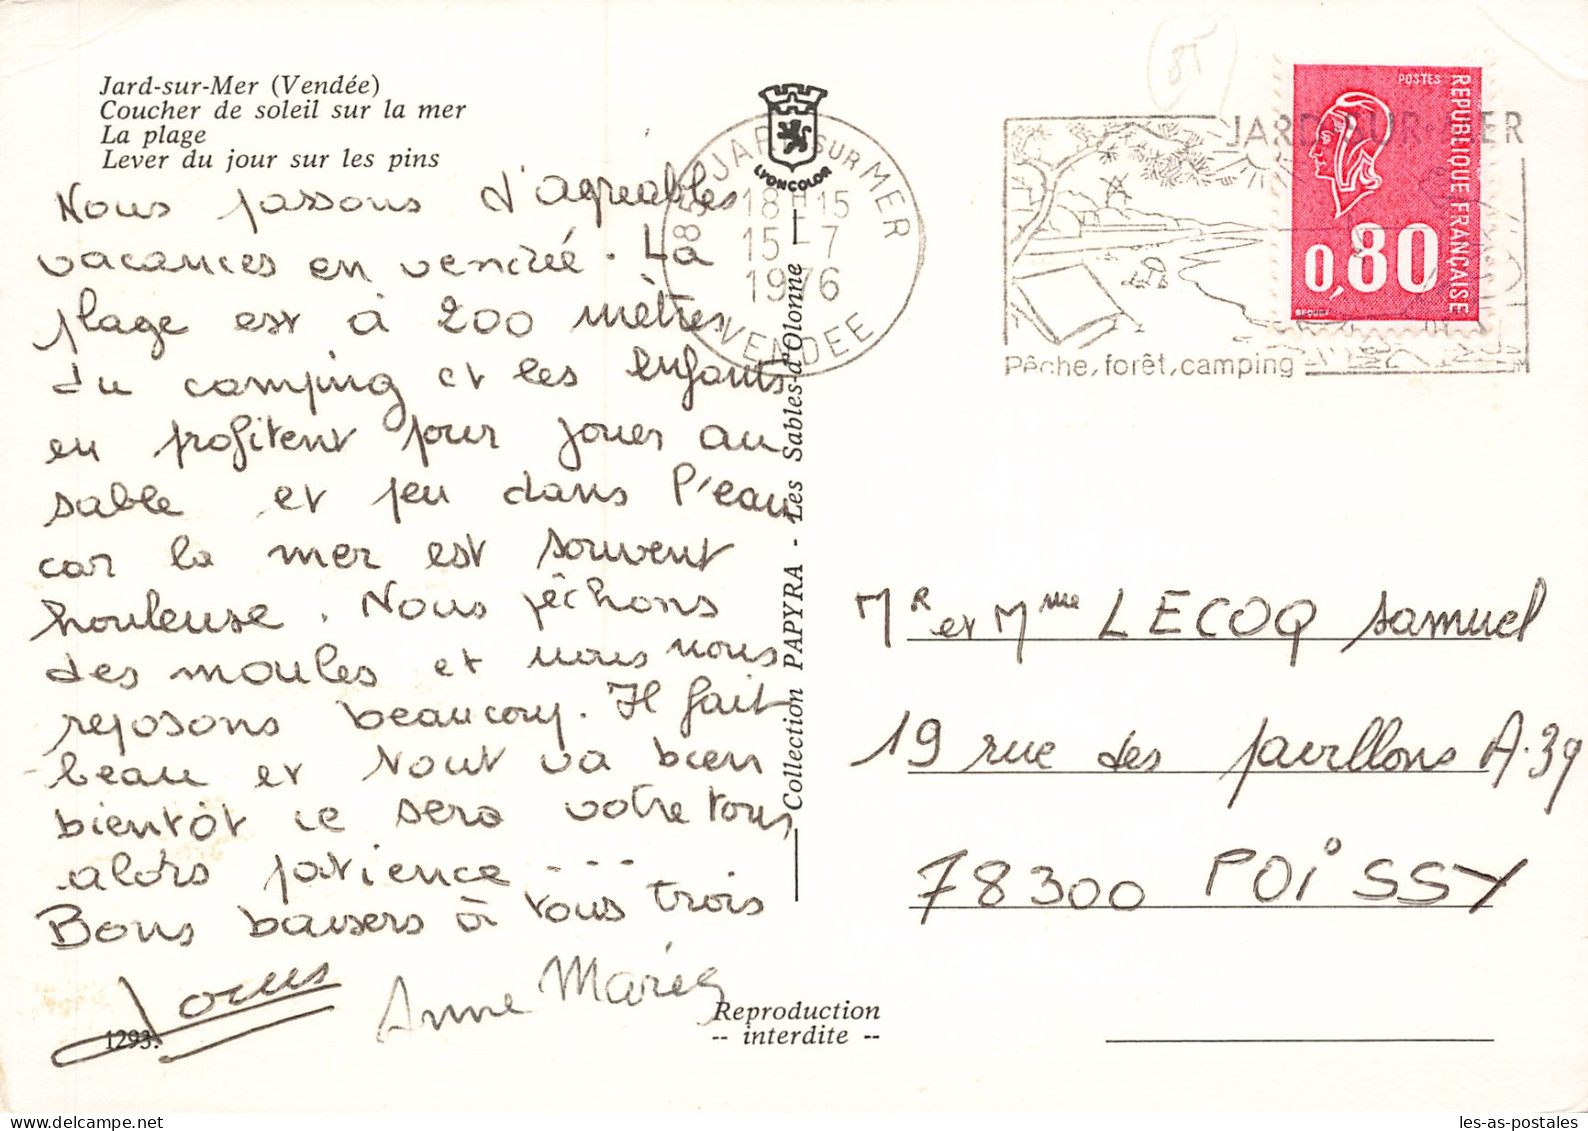 Jard-sur-Mer (Vendée)
Coucher de soleil sur la mer
La plage
Lever du jour sur les pins
Nous passons d'agreables
vacances en vendée. La
plage est à 200 mètres
du camping et les enfants
en profitent pour jouer au
sable et peu dans l'eau
car la mer est souvent
houleuse. Nous pêchons
des moules et nous nous
reposons beaucoup. Il fait
beau et tout va bien
bientôt ce sera votre tour,
alors patience ....
Bons baisers à tous trois
Louis Anne Marie
1293.
LYONCOLOR
JARD SUR MER
18H15
15-7
1976
VENDEE
Collection PAPYRA - Les Sables-d'Olonne
Reproduction
-- interdite --
85
JARD-SUR-MER
Pêche, forêt, camping
POSTES
REPUBLIQUE FRANÇAISE
0,80
BEQUET
Mr et Mme LECOQ Samuel
19 rue des pavillons A.39
78300 POISSY
les-as-postales
delcampe.net